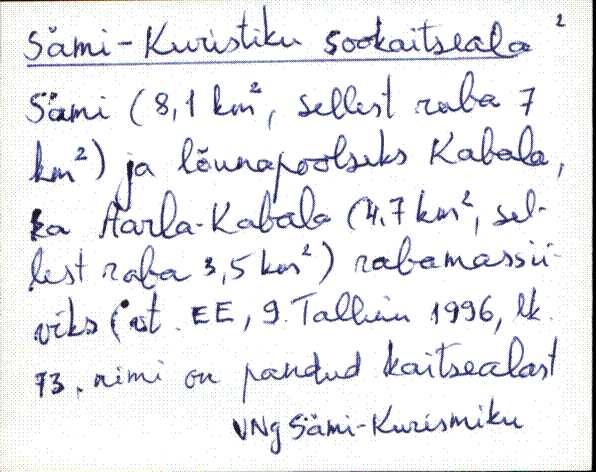 Sämi-Kuristiku sookaitseala 2
Sämi (8,1 km², sellest raba 7
km²) ja lõunapoolseks Kabala,
ka Aarla-Kabala (4,7 km², sel-
lest raba 3,5 km²) rabamassii-
viks (vt. EE, 9. Tallinn 1996, lk.
73. nimi on pandud kaitsealast
VNg Sämi-Kurismiku